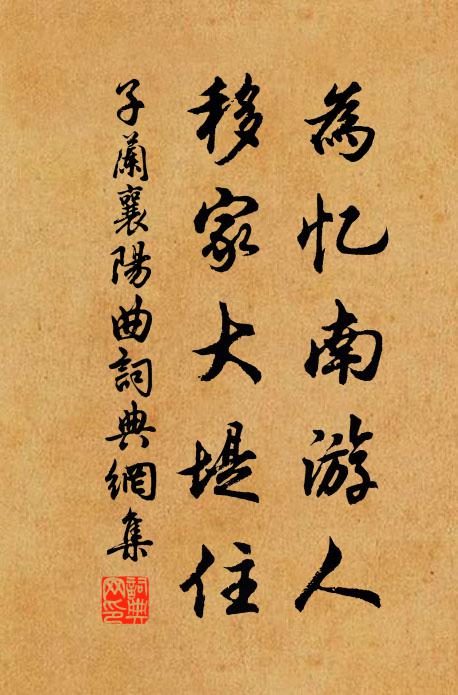 為忆南游人
移家大堤住
子蘭襄陽曲詞典網集
詞典
网印